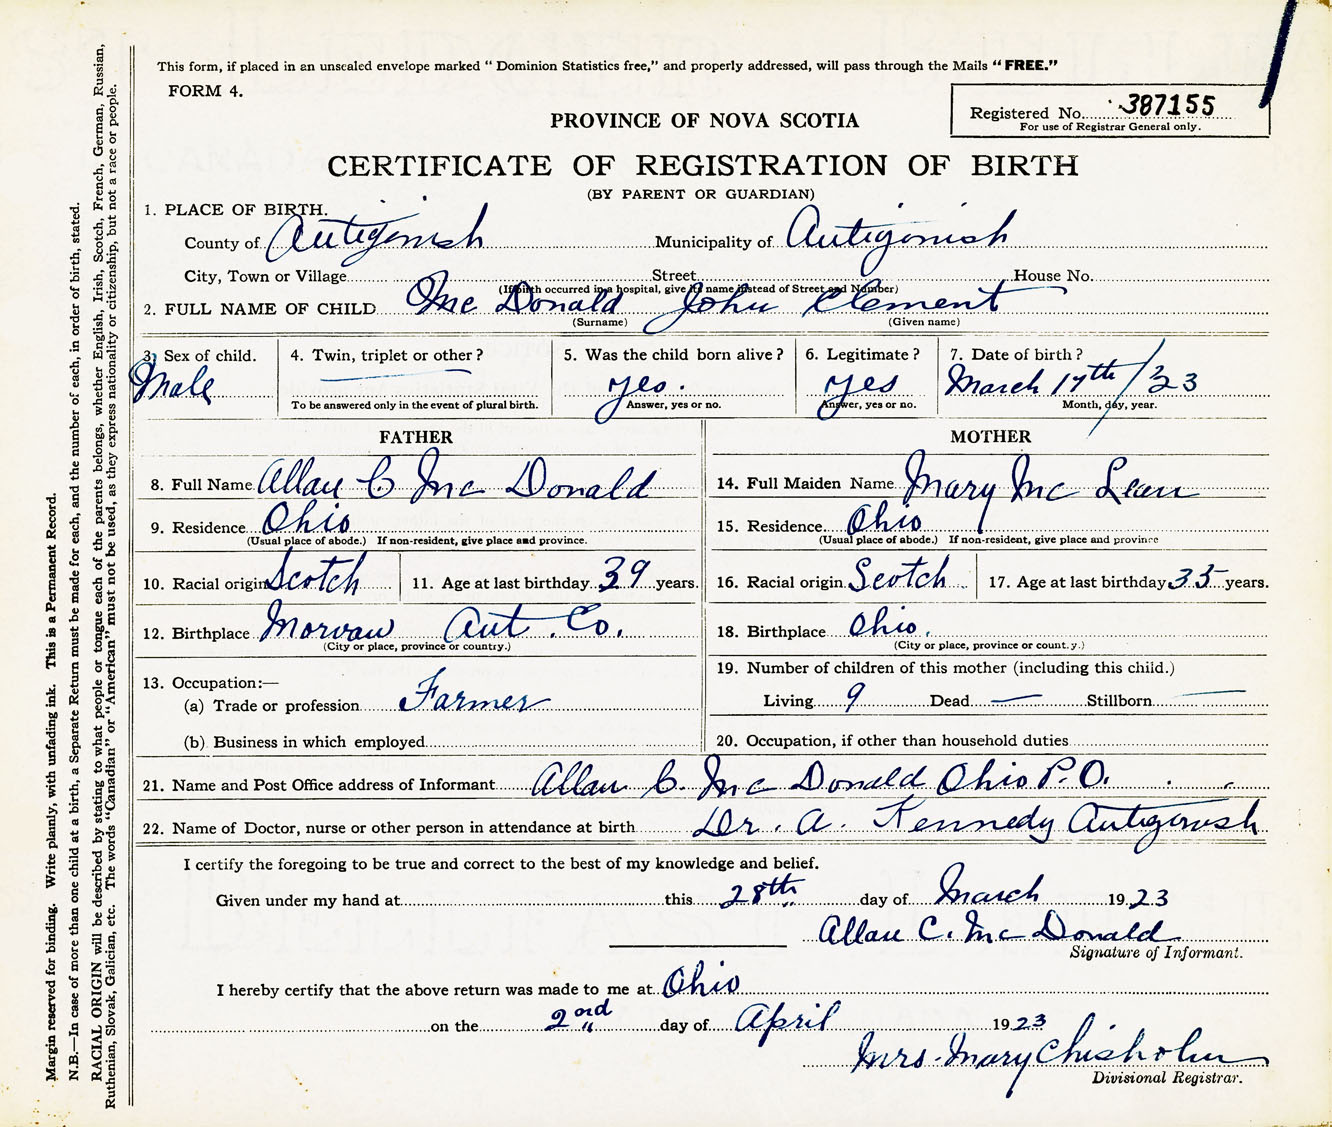 This form, if placed in an unsealed envelope marked "Dominion Statistics free," and properly addressed, will pass through the Mails "FREE."
FORM 4.
Registered No. 387155
For use of Registrar General only.
PROVINCE OF NOVA SCOTIA
CERTIFICATE OF REGISTRATION OF BIRTH
(BY PARENT OR GUARDIAN)
1. PLACE OF BIRTH.
County of Antigonish Municipality of Antigonish
City, Town or Village Street House No.
(If birth occurred in a hospital, give its name instead of Street and Number)
2. FULL NAME OF CHILD Mc Donald John Clement
(Surname) (Given name)
3. Sex of child. 4. Twin, triplet or other? 5. Was the child born alive? 6. Legitimate? 7. Date of birth?
Male yes. yes March 17th/23
To be answered only in the event of plural birth. Answer, yes or no. Answer, yes or no. Month, day, year.
FATHER MOTHER
8. Full Name Allan C Mc Donald 14. Full Maiden Name Mary Mc Lean
9. Residence Ohio 15. Residence Ohio
(Usual place of abode.) If non-resident, give place and province. (Usual place of abode.) If non-resident, give place and province
10. Racial origin Scotch 11. Age at last birthday 39 years. 16. Racial origin Scotch 17. Age at last birthday 35 years.
12. Birthplace Morvan Ant. Co. 18. Birthplace Ohio.
(City or place, province or country.) (City or place, province or country.)
19. Number of children of this mother (including this child.)
13. Occupation:—
(a) Trade or profession Farmer Living 9 Dead — Stillborn —
(b) Business in which employed 20. Occupation, if other than household duties
21. Name and Post Office address of Informant Allan C. Mc Donald Ohio P.O.
22. Name of Doctor, nurse or other person in attendance at birth Dr. A. Kennedy Antigonish
I certify the foregoing to be true and correct to the best of my knowledge and belief.
Given under my hand at this 28th day of March 1923
Allan C. Mc Donald
Signature of Informant.
I hereby certify that the above return was made to me at Ohio
on the 2ond day of April 1923
Mrs. Mary Chisholm
Divisional Registrar.
Margin reserved for binding. Write plainly, with unfading ink. This is a Permanent Record.
N.B.—In case of more than one child at a birth, a Separate Return must be made for each, and the number of each, in order of birth, stated.
RACIAL ORIGIN will be described by stating to what people or tongue each of the parents belongs, whether English, Irish, Scotch, French, German, Russian,
Ruthenian, Slovak, Galician, etc. The words "Canadian" or "American" must not be used, as they express nationality or citizenship, but not a race or people.